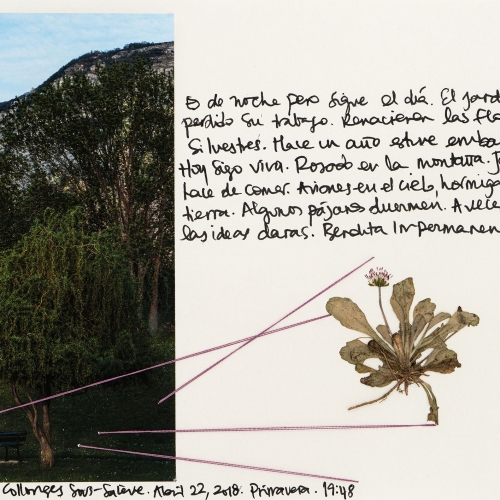 Es de noche pero sigue el día. El jard
perdido su trabajo. Renacieron las flo
Silvestres. Hace un año estuve emba
Hoy sigo viva. Rosado en la montaña.
hace de comer. Aviones en el cielo, hormiga
tierra. Algunos pájaros duermen. A vece
las ideas claras. Bendita Impermanen
Collonges Sous-Salève. Abril 22, 2018. Primavera. 19:48